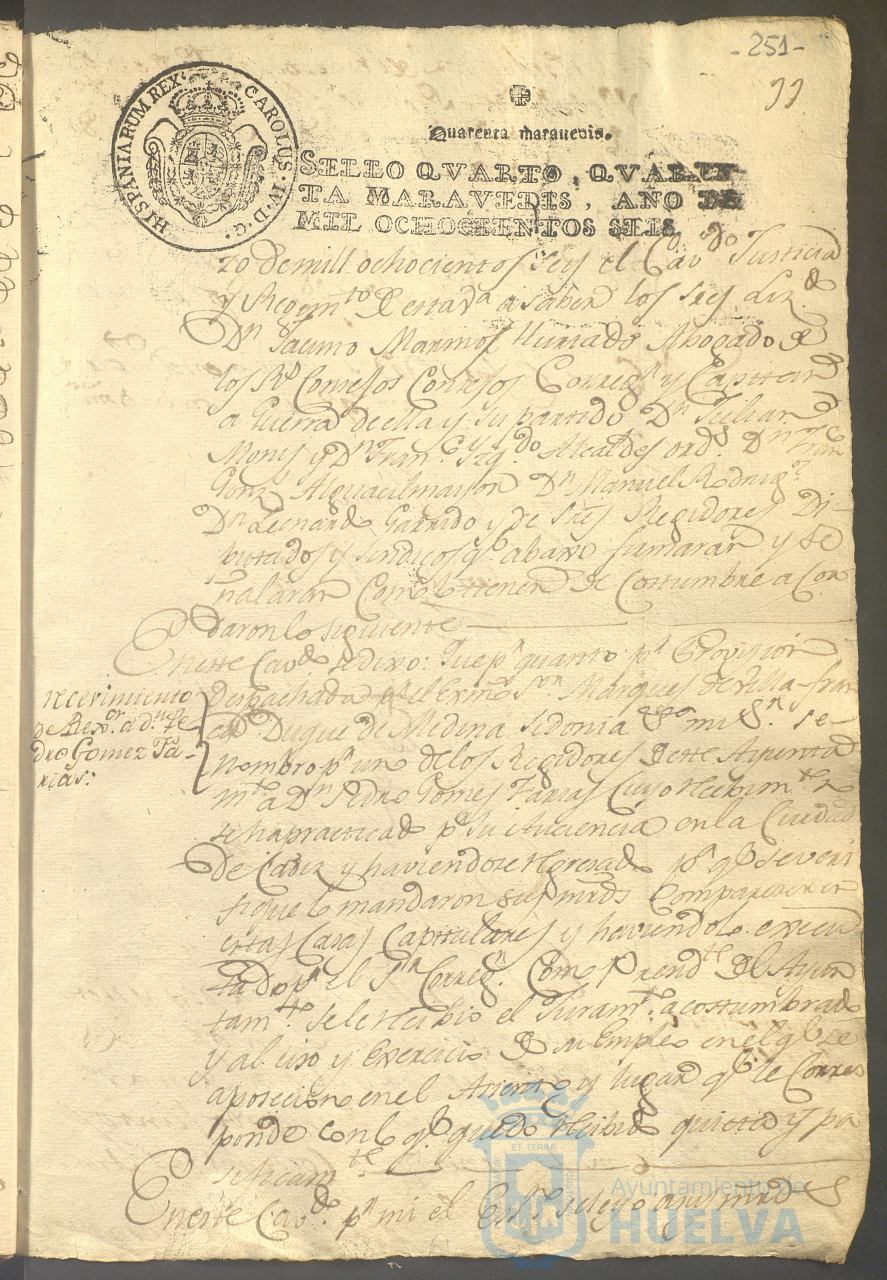 -251-
33
HISPANIARUM REX · CAROLUS · IV · D · G ·
Quarenta maravedis.
SELLO QVARTO, QVAREN
TA MARAVEDIS, AÑO DE
MIL OCHOCIENTOS SEIS
zo de mill ochocientos seis el Cavdo Justicia
y Regimto de esta va a saber los Sres Lizdo
Dn Jacinto Hurtado Abogado de
los Rs Consejos Corregr y Capitan
a Guerra de ella y su partido Dn Julian
y Dn Franco Alcaldes ords Dn
Gonz Alguacil mayor Dn Manuel Rodrigz
Dn Leonardo Garrido y de Sres Regidores Di
putados y Sindicos qe abaxo firmaran y se
ñalaran como lo tienen de costumbre acor
daron lo siguiente
En este Cavdo se dixo: Que pr quanto pr Provision
despachada el Exmo Sor Marques de Villa-fran
ca Duque de Medina Sidonia mi Sr se
nombro pr uno de los Regidores de este Ayunta
mto a Dn Pedro Gomes Farias cuyo recibimto no
se ha practicado pr su ausencia en la Ciudad
de Cadiz y haviendose regresado pa qe se veri
fique lo mandaron sus mrds comparecer en
estas Casas Capitulares y haviendolo execu
tado pr el Sr Corregr como Presidte del Ayun
tamto se le recibio el Juramto acostumbrado
y al uso y exercicio de su Empleo en el qe se
aposeciono en el Asiento y lugar qe le corres
ponde con lo qe quedo recibido quieta y pa
sificamte
En este Cavdo pr mi el Esno se leyo a sus mrds
recevimiento
de Rexor a dn Pe
dro Gomez Fa-
rias:
ET TERRÆ
Ayuntamiento de
HUELVA